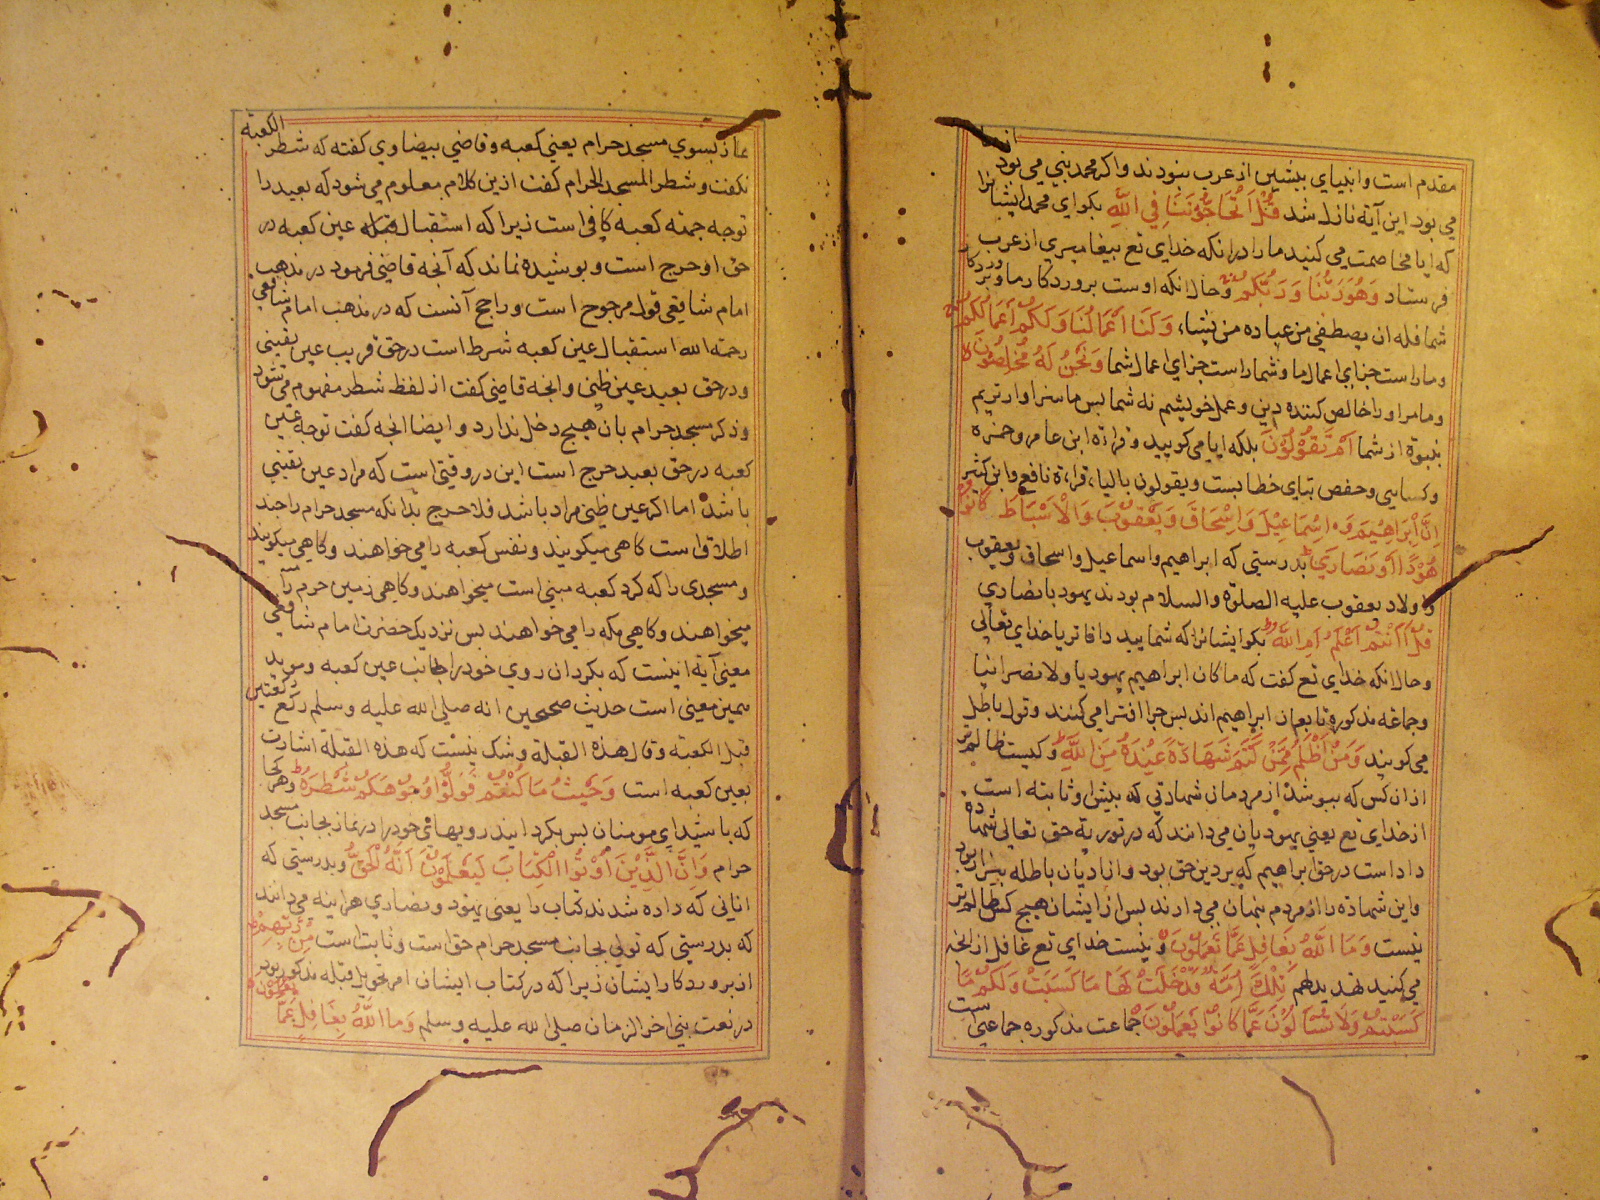 مقدم است وانبیای پیشین از عرب نبودند واکر محمد نبی می بود از ما
می بود این آیة نازل شد قُلْ اَتُحَاجُّوْنَنَا فِي اللّٰهِ بکو ای محمد ایشانرا
که ایا مخاصمت می کنید ما را در انکه خدای تع پیغامبری از عرب
فرستاد وَهُوَ رَبُّنَا وَرَبُّكُمْ وحال انکه اوست پروردکار ما وپروردکار
شما فله ان یصطفی من عباده من یشاء وَلَنَا اَعْمَالُنَا وَلَكُمْ اَعْمَالُكُمْ
وما راست جزای اعمال ما وشما راست جزای اعمال شما وَنَحْنُ لَهُ مُخْلِصُوْنَ
وما مر او را خالص کننده دین وعمل خویشیم نه شما پس ما سزاوارتریم
بنبوة از شما اَمْ تَقُوْلُوْنَ بلکه ایا می کویید وقراءة ابن عامر وحمزه
وکسایی وحفص بتای خطابست ویقولون بالیاء قراءة نافع وابن کثیر
اِنَّ اِبْرَاهِيْمَ وَاِسْمَاعِيْلَ وَاِسْحَاقَ وَيَعْقُوْبَ وَالْاَسْبَاطَ كَانُوْا
هُوْدًا اَوْ نَصَارٰى بدرستی که ابراهیم واسماعیل واسحاق ویعقوب
واولاد یعقوب علیه الصلوة والسلام بودند یهود یا نصاری
قُلْ اَاَنْتُمْ اَعْلَمُ اَمِ اللّٰهُ بکو ایشانرا که شمایید داناتر یا خدای تعالی
وحال انکه خدای تع کفت که ما کان ابراهیم یهودیا ولا نصرانیا
وجماعه مذکوره تابعان ابراهیم اند پس چرا افترا می کنند وقول باطل
می کویند وَمَنْ اَظْلَمُ مِمَّنْ كَتَمَ شَهَادَةً عِنْدَهُ مِنَ اللّٰهِ وکیست ظالم تر
از ان کس که بپوشد از مردمان شهادتی که پیش او ثابته است
از خدای تع یعنی یهودیان می دانند که در توریة حق تعالی شهادة
داداست در حق ابراهیم که بر دین حق بود واز ادیان باطله بیزار بود
واین شهادة را از مردم پنهان می دارند پس از ایشان هیچ کس ظالم تر
نیست وَمَا اللّٰهُ بِغَافِلٍ عَمَّا تَعْمَلُوْنَ ونیست خدای تع غافل از انچه
می کنید تهدید لهم تِلْكَ اُمَّةٌ قَدْ خَلَتْ لَهَا مَا كَسَبَتْ وَلَكُمْ مَّا
كَسَبْتُمْ وَلَا تُسْاَلُوْنَ عَمَّا كَانُوْا يَعْمَلُوْنَ جماعت مذکوره جماعتی است
نماز بسوی مسجد حرام یعنی کعبه وقاضی بیضاوی کفته که شطر الکعبة
نکفت وشطر المسجد الحرام کفت ازین کلام معلوم می شود که بعید را
توجه جهته کعبه کافی است زیرا که استقبال قبله عین کعبه در
حق او حرج است وپوشیده نماند که آنچه قاضی فرمود در مذهب
امام شافعی قول مرجوح است وراجح آنست که در مذهب امام شافعی
رحمة الله استقبال عین کعبه شرط است در حق قریب عین یقینی
ودر حق بعید عین ظنی وانچه قاضی کفت از لفظ شطر مفهوم می شود
وذکر مسجد حرام بان هیچ دخل ندارد وایضا انچه کفت توجه عین
کعبه در حق بعید حرج است این در وقتی است که مراد عین یقینی
باشد اما اکر عین ظنی مراد باشد فلا حرج بدانکه مسجد حرام را چند
اطلاق است کاهی میکویند ونفس کعبه را می خواهند وکاهی میکویند
ومسجدی را که کرد کعبه مبنی است میخواهند وکاهی زمین حرم را
میخواهند وکاهی مکه را می خواهند پس نزدیک حضرت امام شافعی
معنی آیة اینست که بکردان روی خود را بجانب عین کعبه وموید
همین معنی است حدیث صحیحین انه صلی الله علیه وسلم رکع رکعتین
قبل الکعبة وقال هذه القبلة وشک نیست که هذه القبلة اشارت
بعین کعبه است وَحَيْثُ مَا كُنْتُمْ فَوَلُّوْا وُجُوْهَكُمْ شَطْرَهُ وهر کجا
که باشید ای مومنان پس بکردانید رویهای خود را در نماز بجانب مسجد
حرام وَاِنَّ الَّذِيْنَ اُوْتُوا الْكِتَابَ لَيَعْلَمُوْنَ اَنَّهُ الْحَقُّ وبدرستی که
انانی که داده شدند کتاب را یعنی یهود ونصاری هراینه می دانند
که بدرستی که تولی بجانب مسجد حرام حق است وثابت است مِنْ رَّبِّهِمْ
از پروردکار ایشان زیرا که در کتاب ایشان امر تحویل قبله مذکور بود
در نعت نبی اخر الزمان صلی الله علیه وسلم وَمَا اللّٰهُ بِغَافِلٍ عَمَّا يَعْمَلُوْنَ